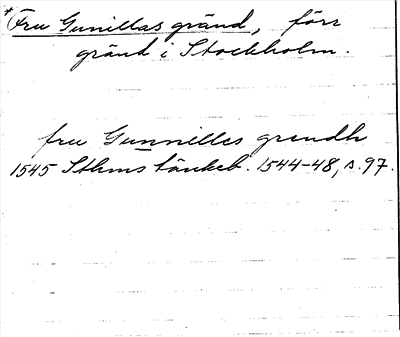 *Fru Gunillas gränd, förr
gränd i Stockholm.
fru Gunnilles grendh
1545 Sthms tänkeb. 1544-48, s. 97.